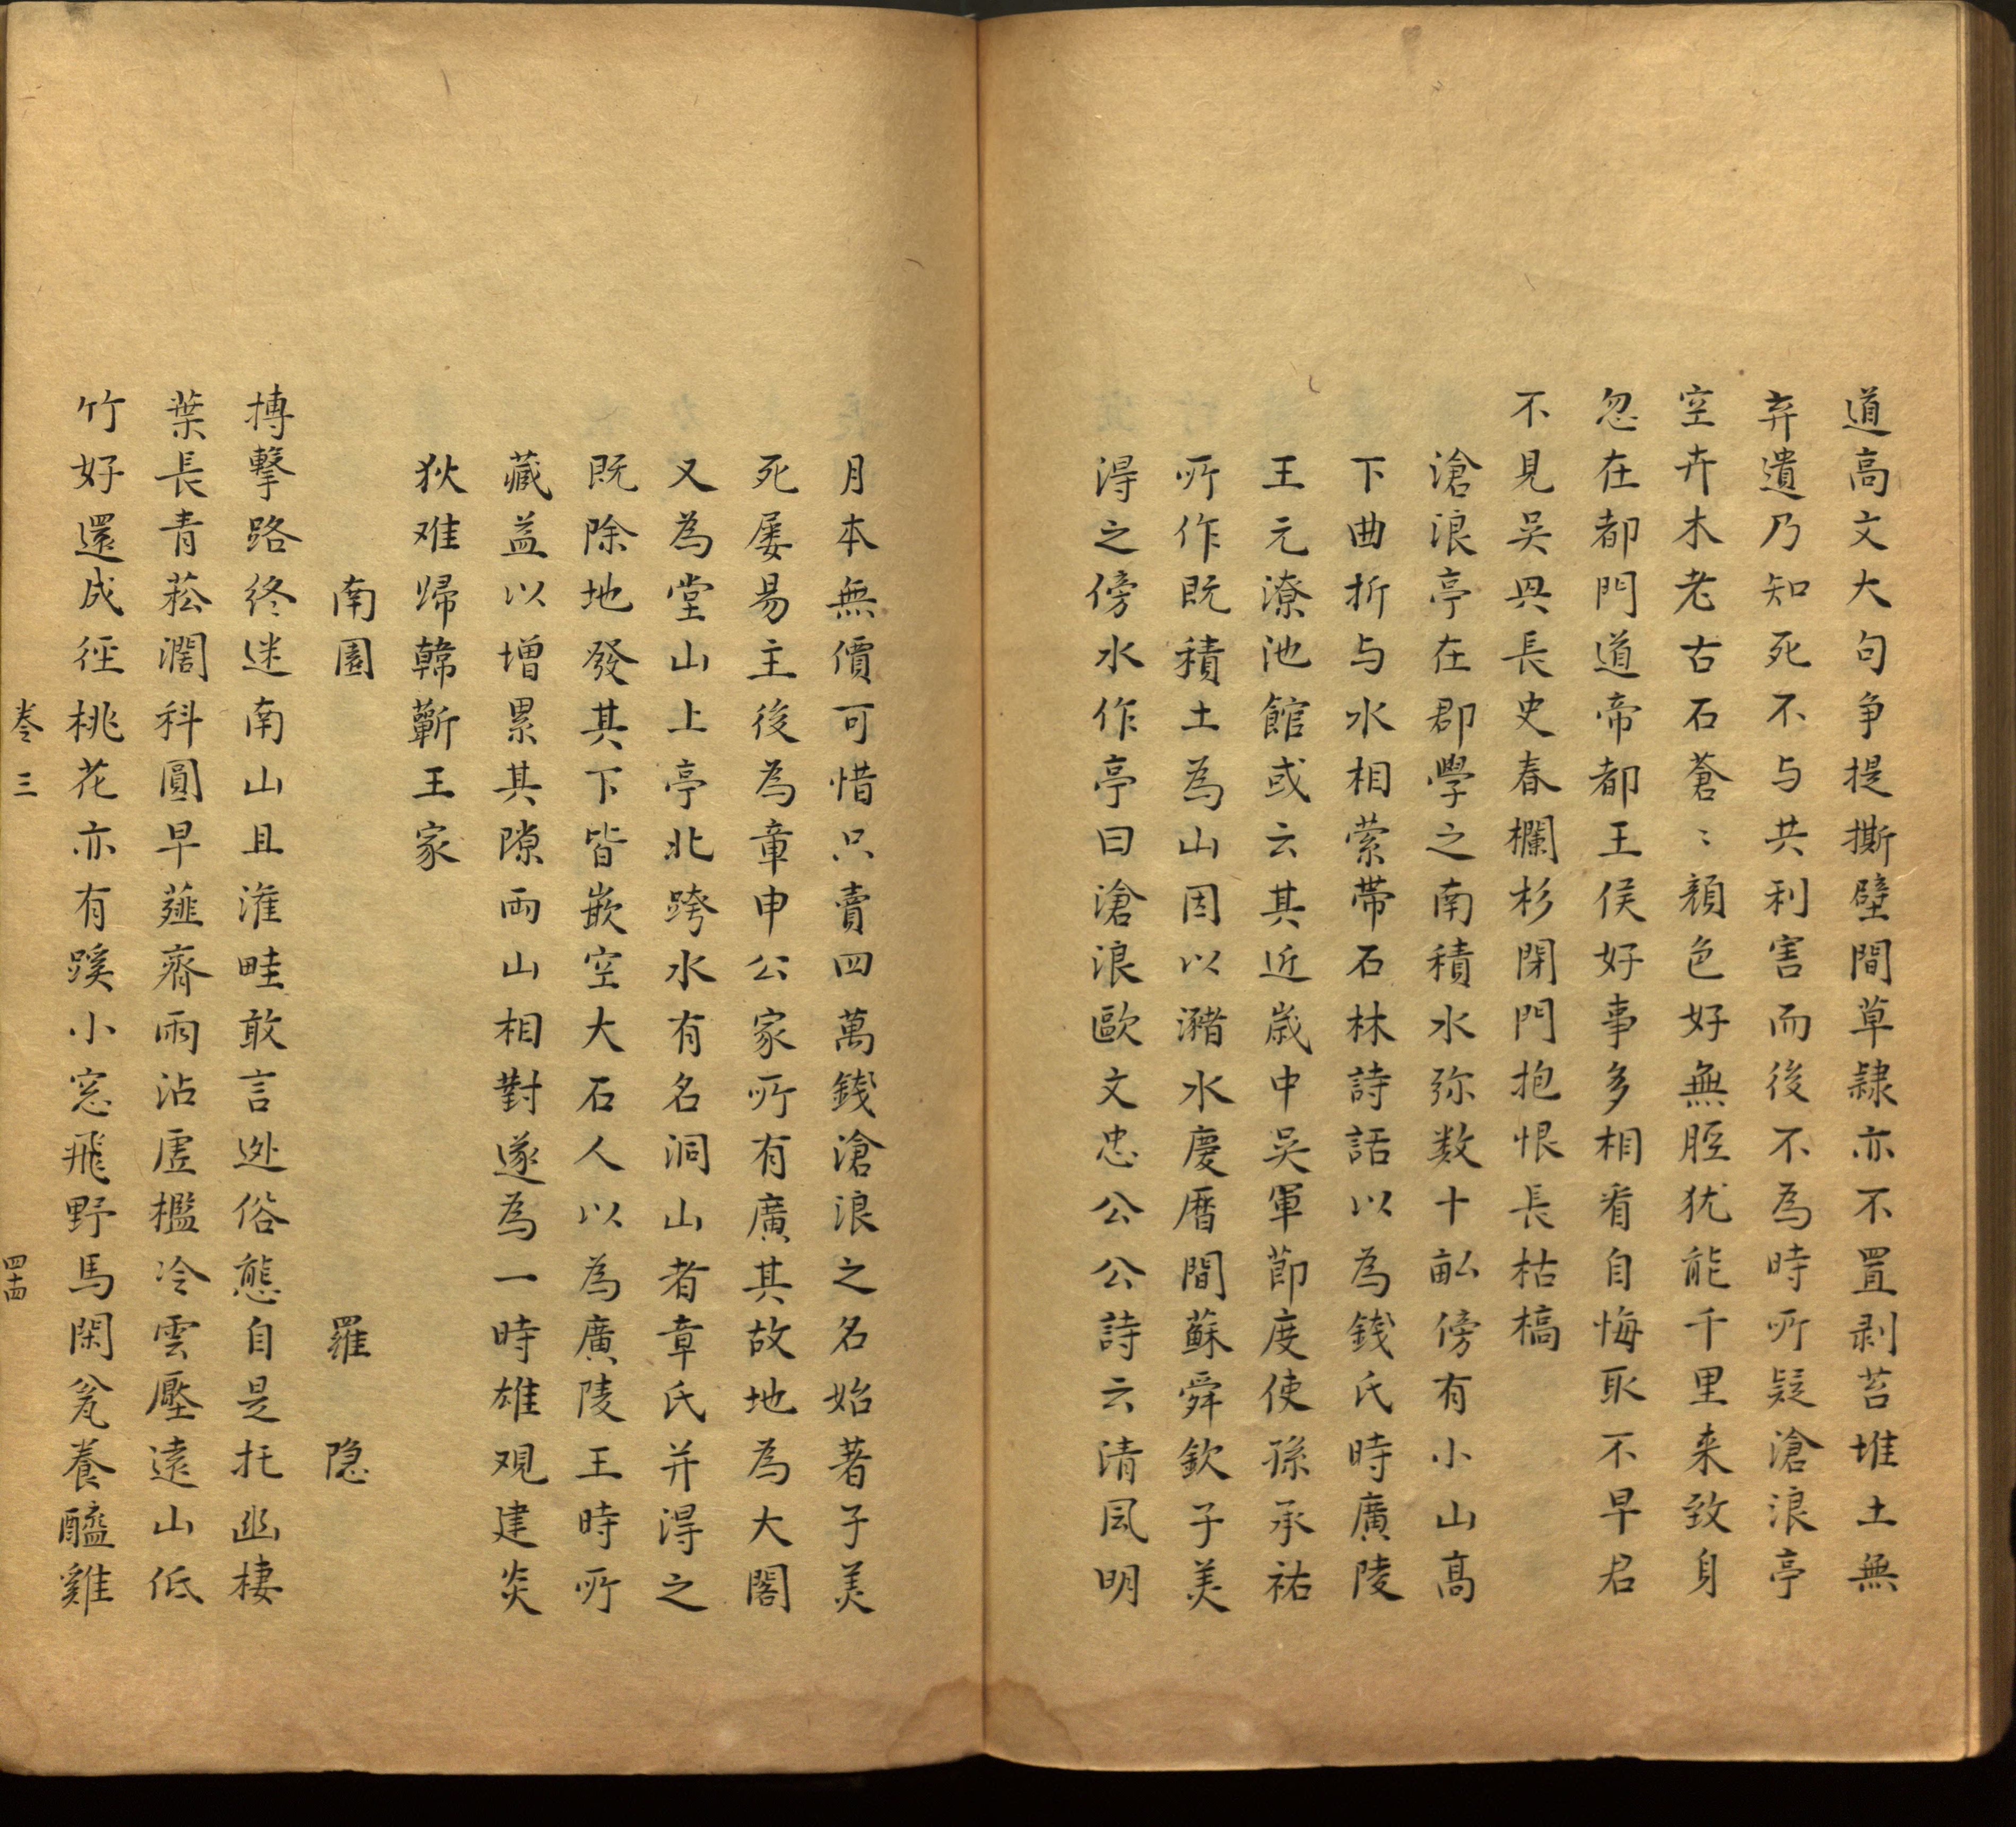 道高文大句争提撕壁間草隷亦不置剥苔堆土無
弃遺乃知死不与共利害而後不為時所疑滄浪亭
空卉木老古石蒼〻顔色好無脛犹能千里来致身
忽在都門道帝都王侯好事多相看自悔取不早君
不見吴興長史春欄杉閉門抱恨長枯槁
滄浪亭在郡學之南積水弥数十畝傍有小山髙
下曲折与水相萦帶石林詩話以為錢氏時廣陵
王元潦池館或云其近歲中吴軍節度使孫承祐
所作既積土為山因以瀦水慶曆間蘇舜欽子美
得之傍水作亭曰滄浪歐文忠公公詩云清風明
月本無價可惜只賣四萬錢滄浪之名始著子美
死屡易主後為章申公家所有廣其故地為大閣
又為堂山上亭北跨水有名洞山者章氏并得之
既除地發其下皆嵌空大石人以為廣陵王時所
藏益以增累其隙両山相對遂為一時雄观建炎
狄难歸韓蘄王家
南園　羅隐
摶擊路終迷南山且漼畦敢言逃俗態自是托幽棲
葉長青菘濶科圓早薤齊雨沾虚檻冷雲壓遠山低
竹好還成徑桃花亦有蹊小窓飛野馬閑瓮養醯雞
卷三
四十四